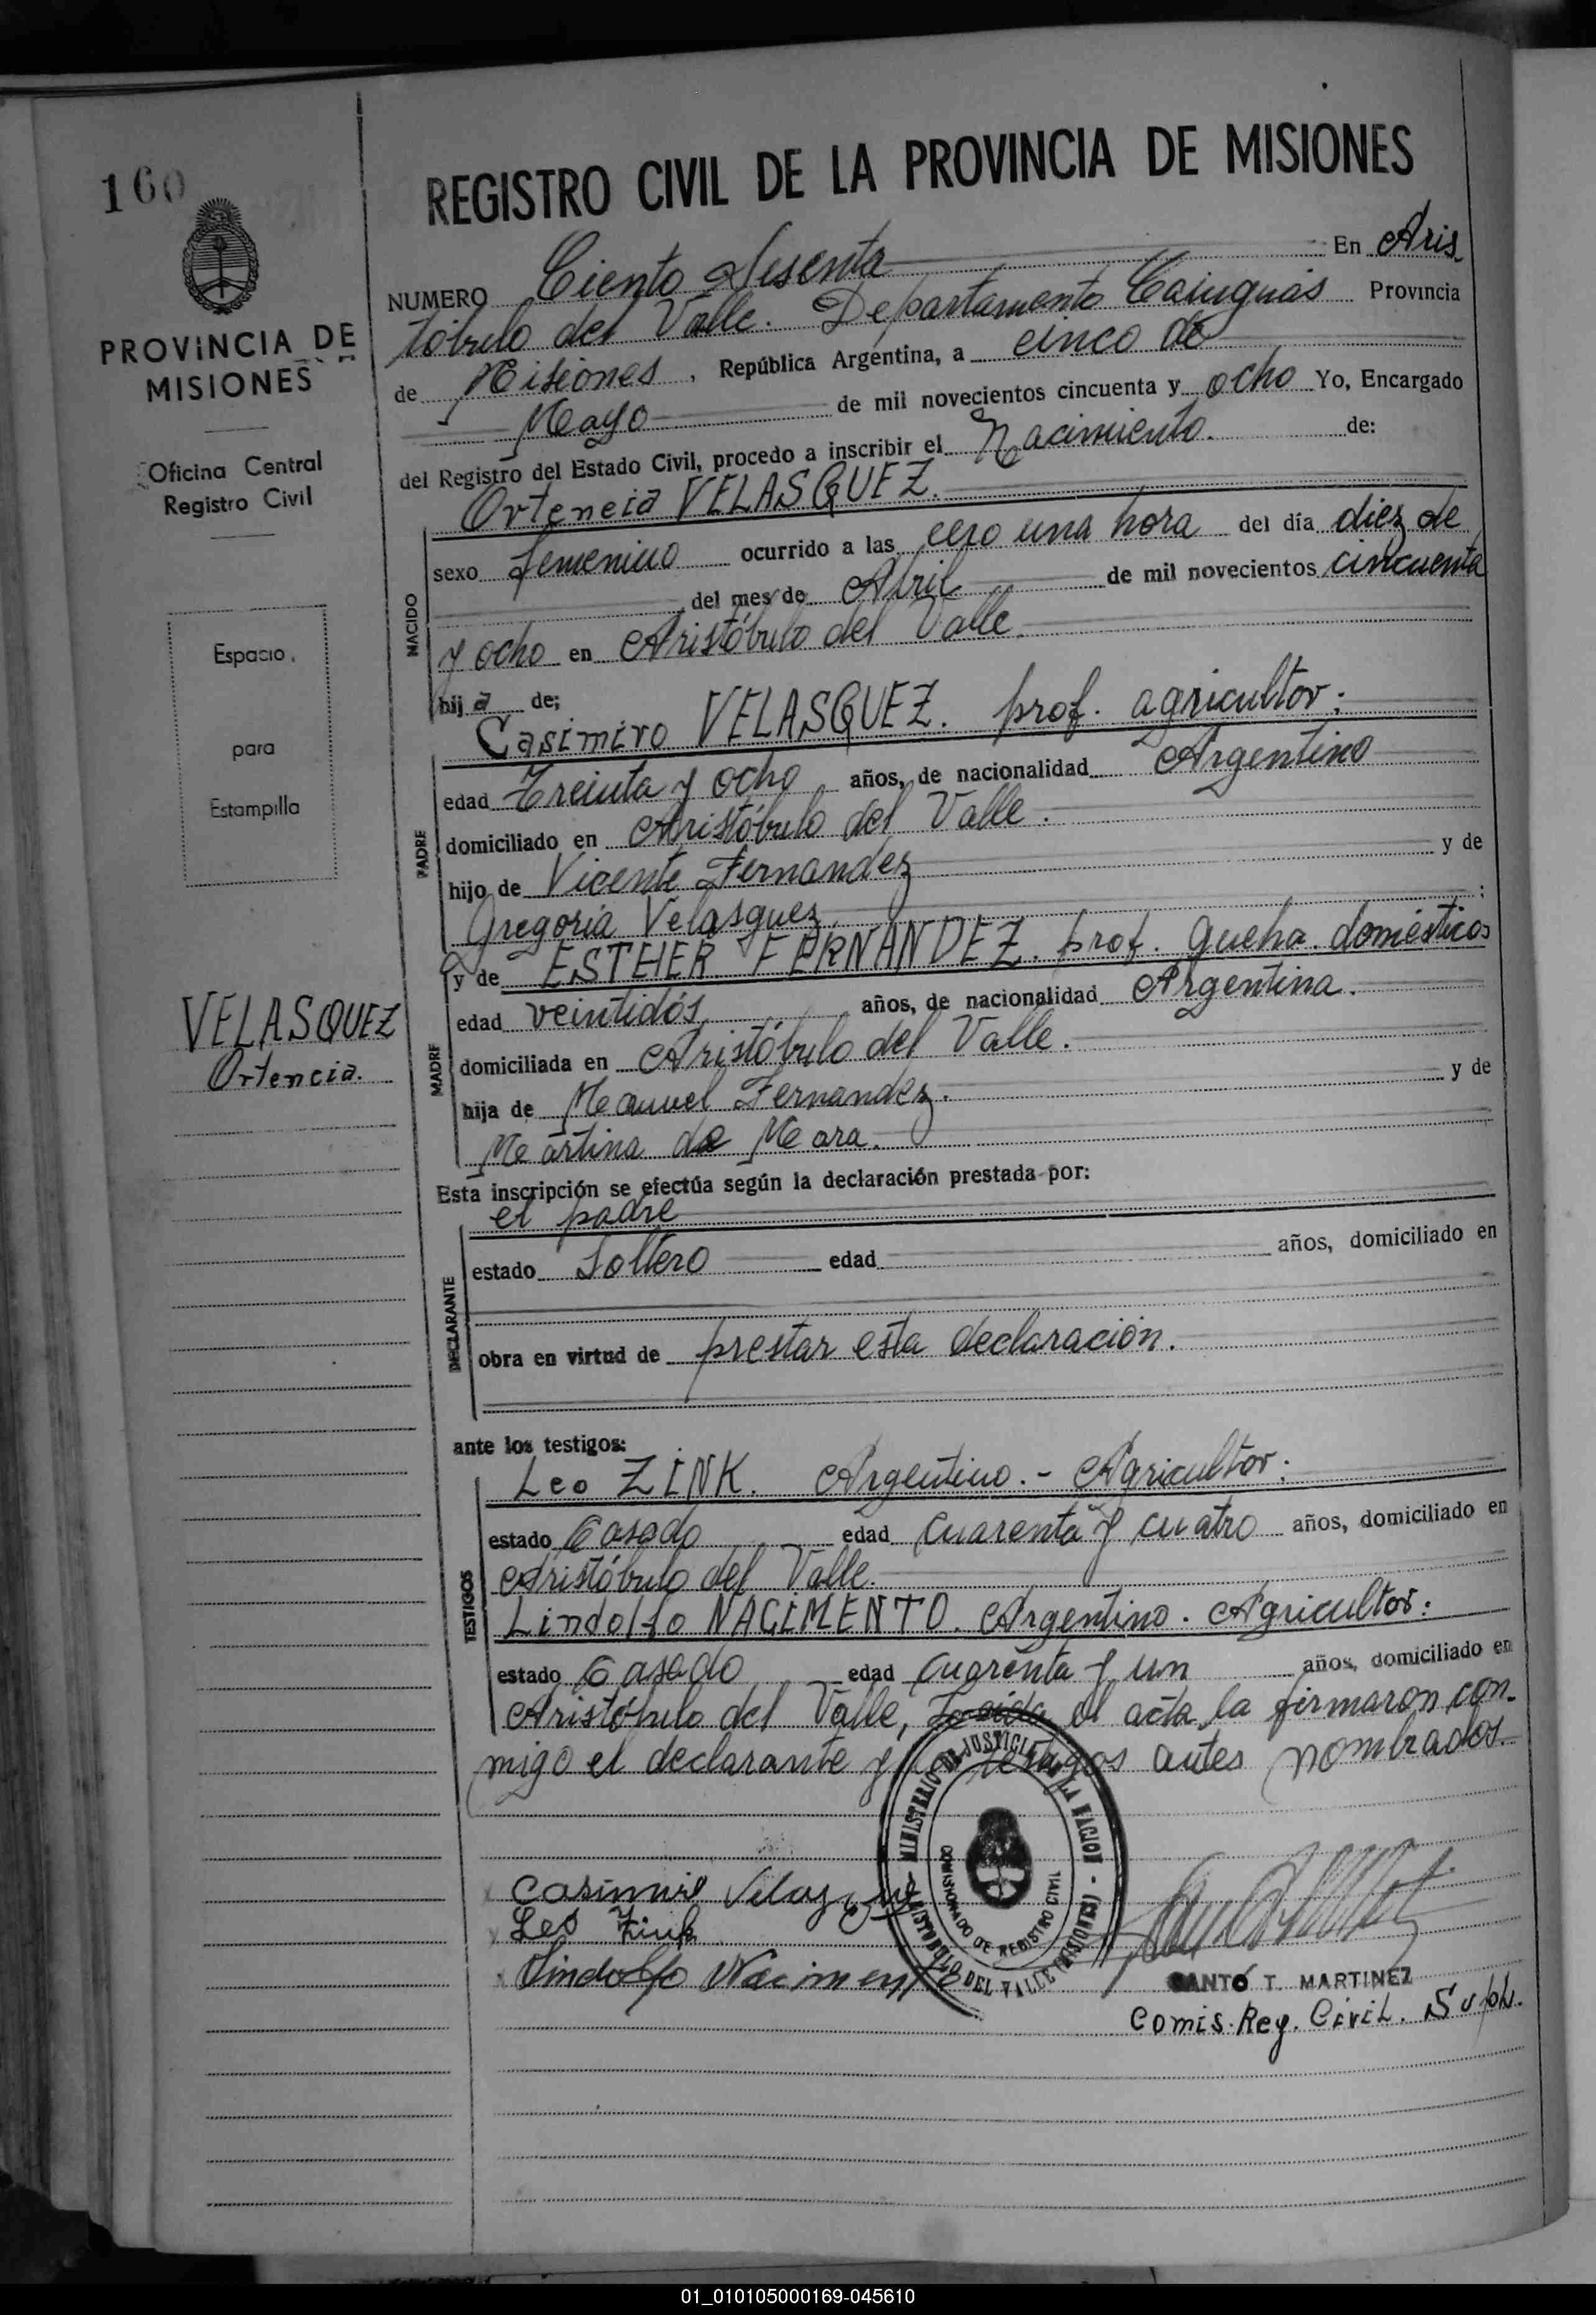 160
PROVINCIA DE
MISIONES
Oficina Central
Registro Civil
Espacio
para
Estampilla
VELASQUEZ
Ortencia.
REGISTRO CIVIL DE LA PROVINCIA DE MISIONES
NUMERO Ciento Sesenta En Aris
tóbulo del Valle. Departamento Cainguás Provincia
de Misiones, República Argentina, a cinco de
Mayo de mil novecientos cincuenta y ocho Yo, Encargado
del Registro del Estado Civil, procedo a inscribir el Nacimiento. de:
Ortencia VELASQUEZ.
NACIDO
sexo femenino ocurrido a las cero una hora del día diez de
del mes de Abril de mil novecientos cincuenta
y ocho en Aristóbulo del Valle.
hija de;
Casimiro VELASQUEZ. prof. agricultor;
PADRE
edad Treinta y ocho años, de nacionalidad Argentino
domiciliado en Aristóbulo del Valle.
hijo de Vicente Fernandez y de
Gregoria Velasquez ;
y de ESTHER FERNANDEZ. prof. queha. domésticos
MADRE
edad veintidós años, de nacionalidad Argentina.
domiciliada en Aristóbulo del Valle.
hija de Manuel Fernandez. y de
Martina de Mara.
Esta inscripción se efectúa según la declaración prestada por:
el padre
DECLARANTE
estado Soltero edad años, domiciliado en
obra en virtud de prestar esta declaración.
ante los testigos:
Leo ZINK. Argentino.- Agricultor;
TESTIGOS
estado Casado edad cuarenta y cuatro años, domiciliado en
Aristóbulo del Valle.
Lindolfo NACIMENTO. Argentino. Agricultor:
estado Casado edad cuarenta y un años, domiciliado en
Aristóbulo del Valle, Leida el acta la firmaron con-
migo el declarante y los testigos antes nombrados.
MINISTERIO DE JUSTICIA DE LA NACION
COMISIONADO DE REGISTRO CIVIL
ARISTOBULO DEL VALLE (MISIONES)
Casimiro Velazque
Leo Zink
Lindolfo Nacimento
SANTO T. MARTINEZ
Comis. Reg. Civil. Supl.
01_010105000169-045610